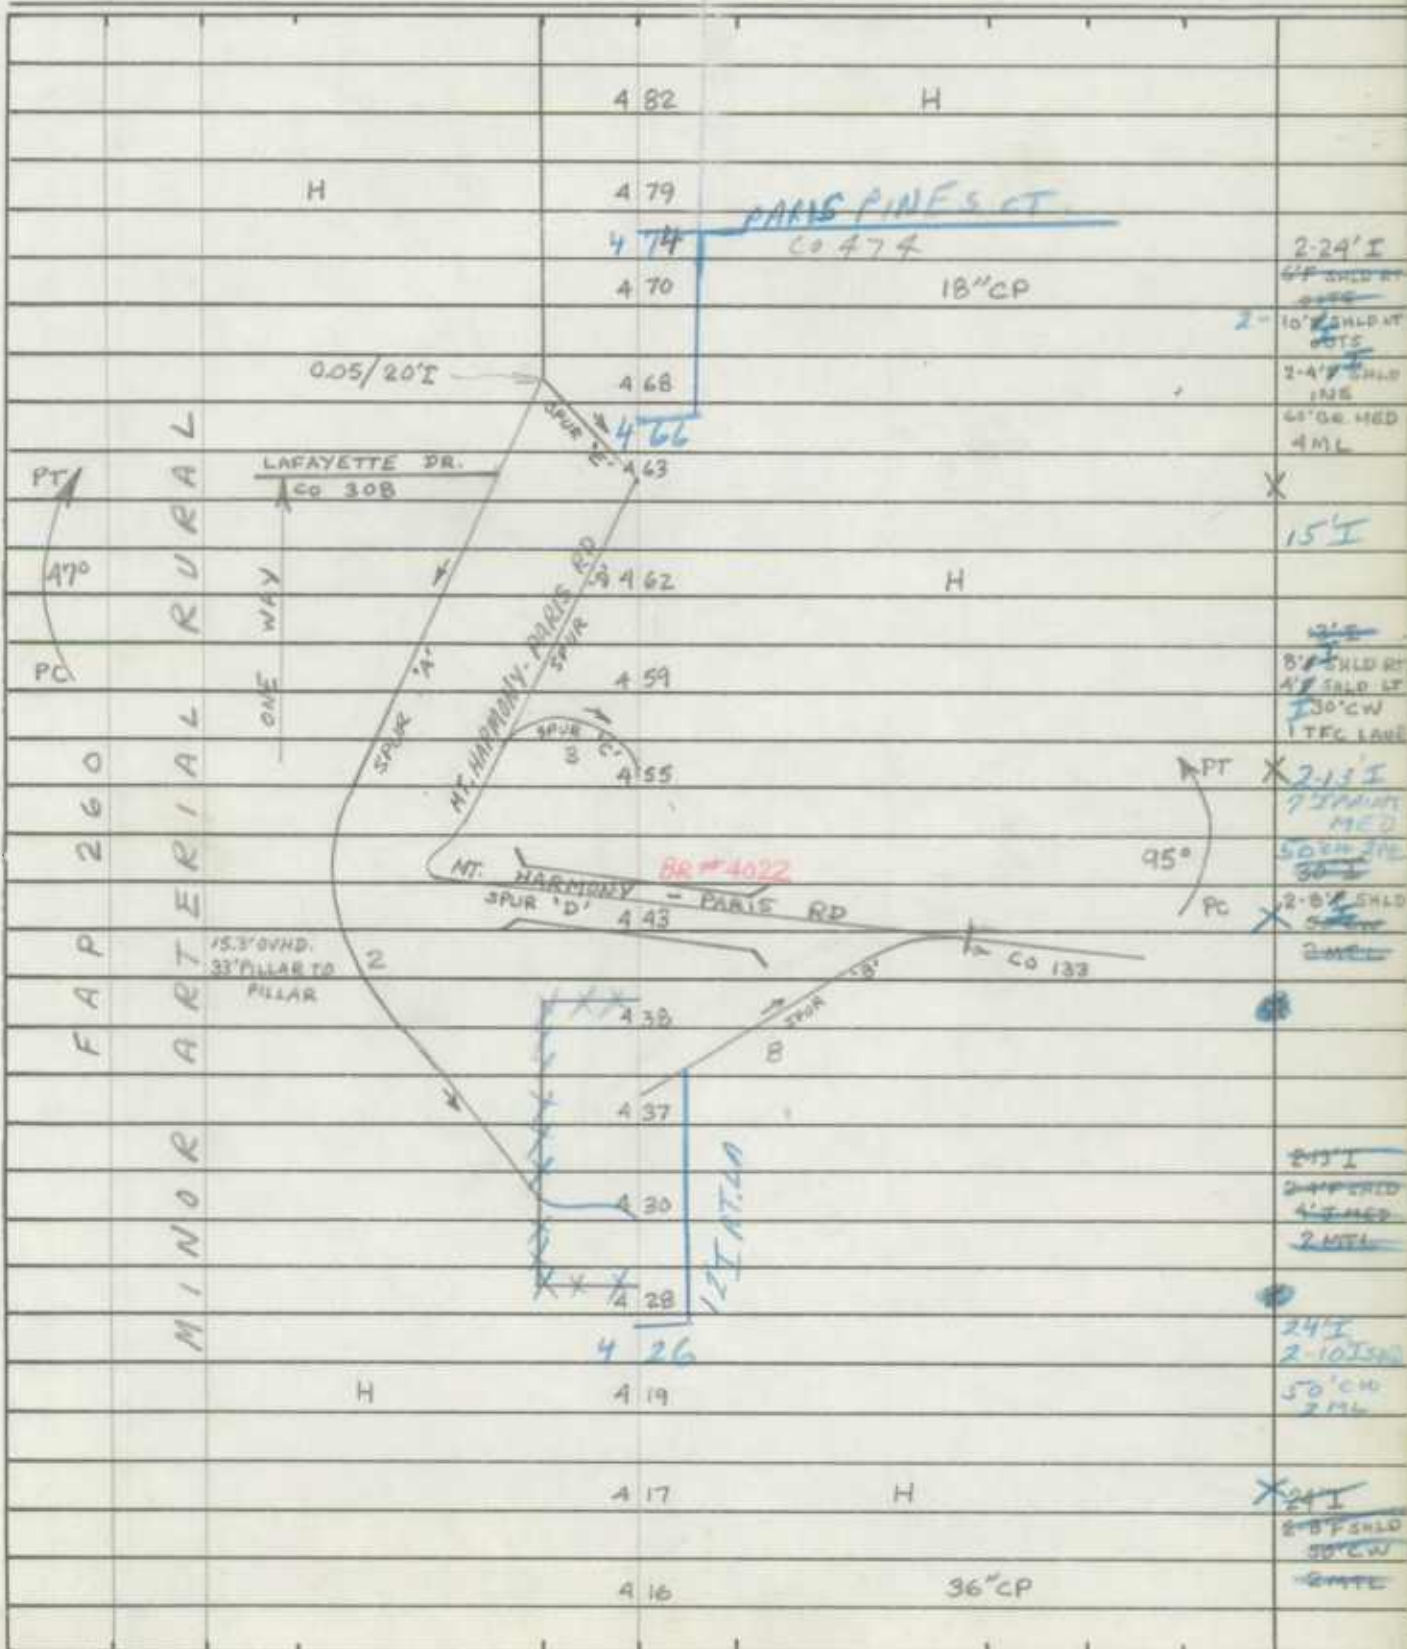 4 82 H
H 4 79
PARIS PINES CT.
4 74 CO 474
4 70 18"CP
0.05/20'I
4 68
SPUR 'E'
4 66
4 63
LAFAYETTE DR.
CO 308
PT
47°
PC
ONE WAY
FAP 260
MINOR ARTERIAL RURAL
4 62 H
MT. HARMONY - PARIS RD
SPUR
SPUR 'A'
4 59
SPUR 'C'
3
4 55
PT
95°
PC
BR #4022
MT. HARMONY - PARIS RD
SPUR 'D'
4 43
CO 133
15.3' OVHD.
33' PILLAR TO
PILLAR
2
4 38
SPUR 'B'
8
4 37
4 30
12'I RT. LA
4 28
4 26
H 4 19
4 17 H
4 16 36"CP
2-24'I
6'F SHLD RT
OUTS
2- 10' I SHLD LT
OUTS
2-4' I SHLD
INS
60' GR. MED
4 ML
15'I
8' I SHLD RT
4' I SHLD LT
30' CW
1 TFC LANE
2-13'I
7'I PAINT
MED
30'I
2-8' I SHLD
2-13'I
2-4'F SHLD
4'I MED
2 MTL
24'I
2-10 I SHD
50' CW
2 ML
24'I
2-8'F SHLD
50' CW
2 MTL